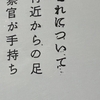 これについて、
付近からの足
察官が手持ち